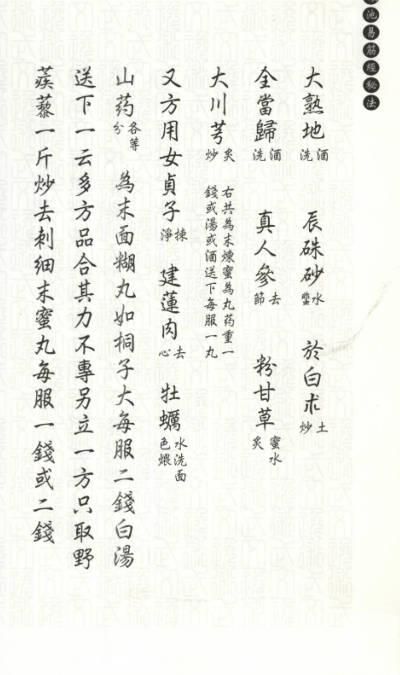 池易筋經秘法
大熟地 酒洗 辰硃砂 水 於白朮 土炒
全當歸 酒洗 真人參 去節 粉甘草 蜜水炙
大川芎 炙炒 右共為末煉蜜為丸药重一錢或湯或酒送下每服一丸
又方用女貞子 揀淨 建蓮肉 去心 牡蠣 水洗面色煨
山药 各等分 為末面糊丸如桐子大每服二錢白湯
送下一云多方品合其力不專另立一方只取野
蒺藜一斤炒去刺細末蜜丸每服一錢或二錢